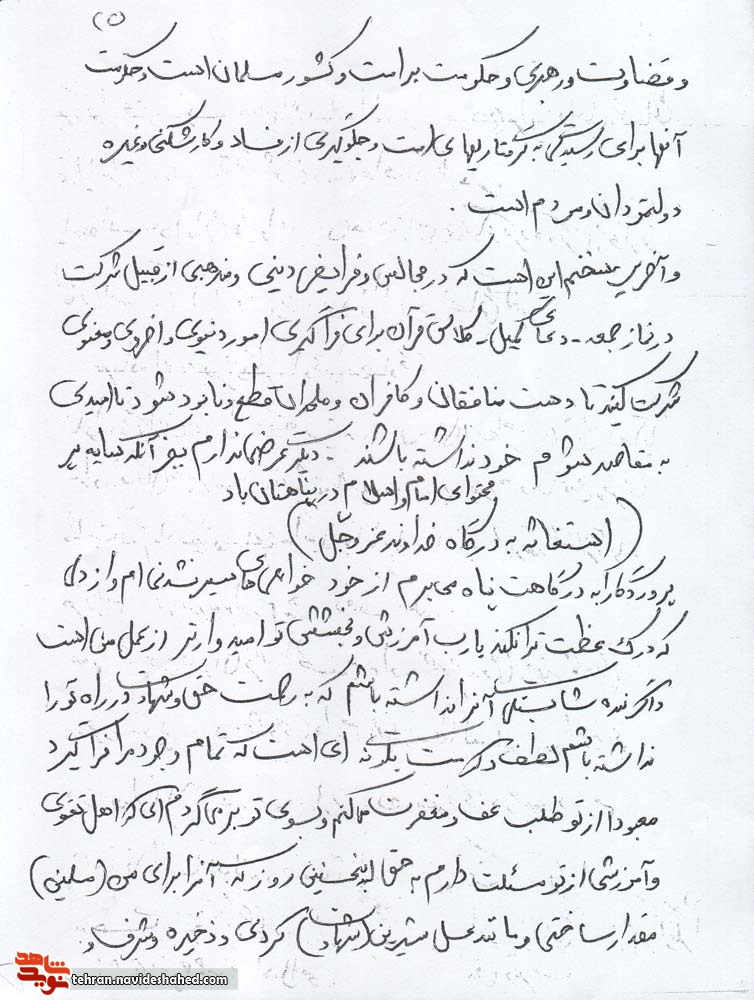 (۵)
و قضاوت و رهبری و حکومت بر امت و کشور مسلمان است و حکومت
آنها برای رسیدگی به گرفتاریهای امت و جلوگیری از فساد و کارشکنی و غیره
دولتمردان و مردم است .
و آخرین سخنم این است که در مجالس و فرایض دینی و مذهبی از قبیل شرکت
در نماز جمعه - دعای کمیل - کلاس قرآن برای فراگیری امور دنیوی و اخروی و معنوی
شرکت کنید تا دست منافقان و کافران و ملحدان قطع و نابود شود تا امیدی
به مقاصد شوم خود نداشته باشند - دیگر عرضی ندارم بجز آنکه سایه پر
محتوای امام و اسلام در پناهتان باد
(استغاثه به درگاه خداوند عزوجل)
پروردگارا به درگاهت پناه می برم از خود خواهی های سیر نشدنی ام و از دلی
که درک عظمت ترا نکند یا رب آمرزش و بخشش تو امیدوارتر از عمل من است
و اگر بنده شایستگی آنرا نداشته باشم که به رحمت حق و شهادت در راه تو را
نداشته باشم لطف و کرمت بگونه ای است که تمام وجود مرا فرا گیرد
معبودا از تو طلب عفو و مغفرت میکنم و بسوی تو بر می گردم ای که اهل تقوی
و آمرزشی از تو مسئلت دارم به حق این چنین روز که آنرا برای من (مسلمین)
مقدر ساختی و مانند عسل شیرین (شهادت) کردی و ذخیره و شرف و
نوید شاهد
tehran.navideshahed.com